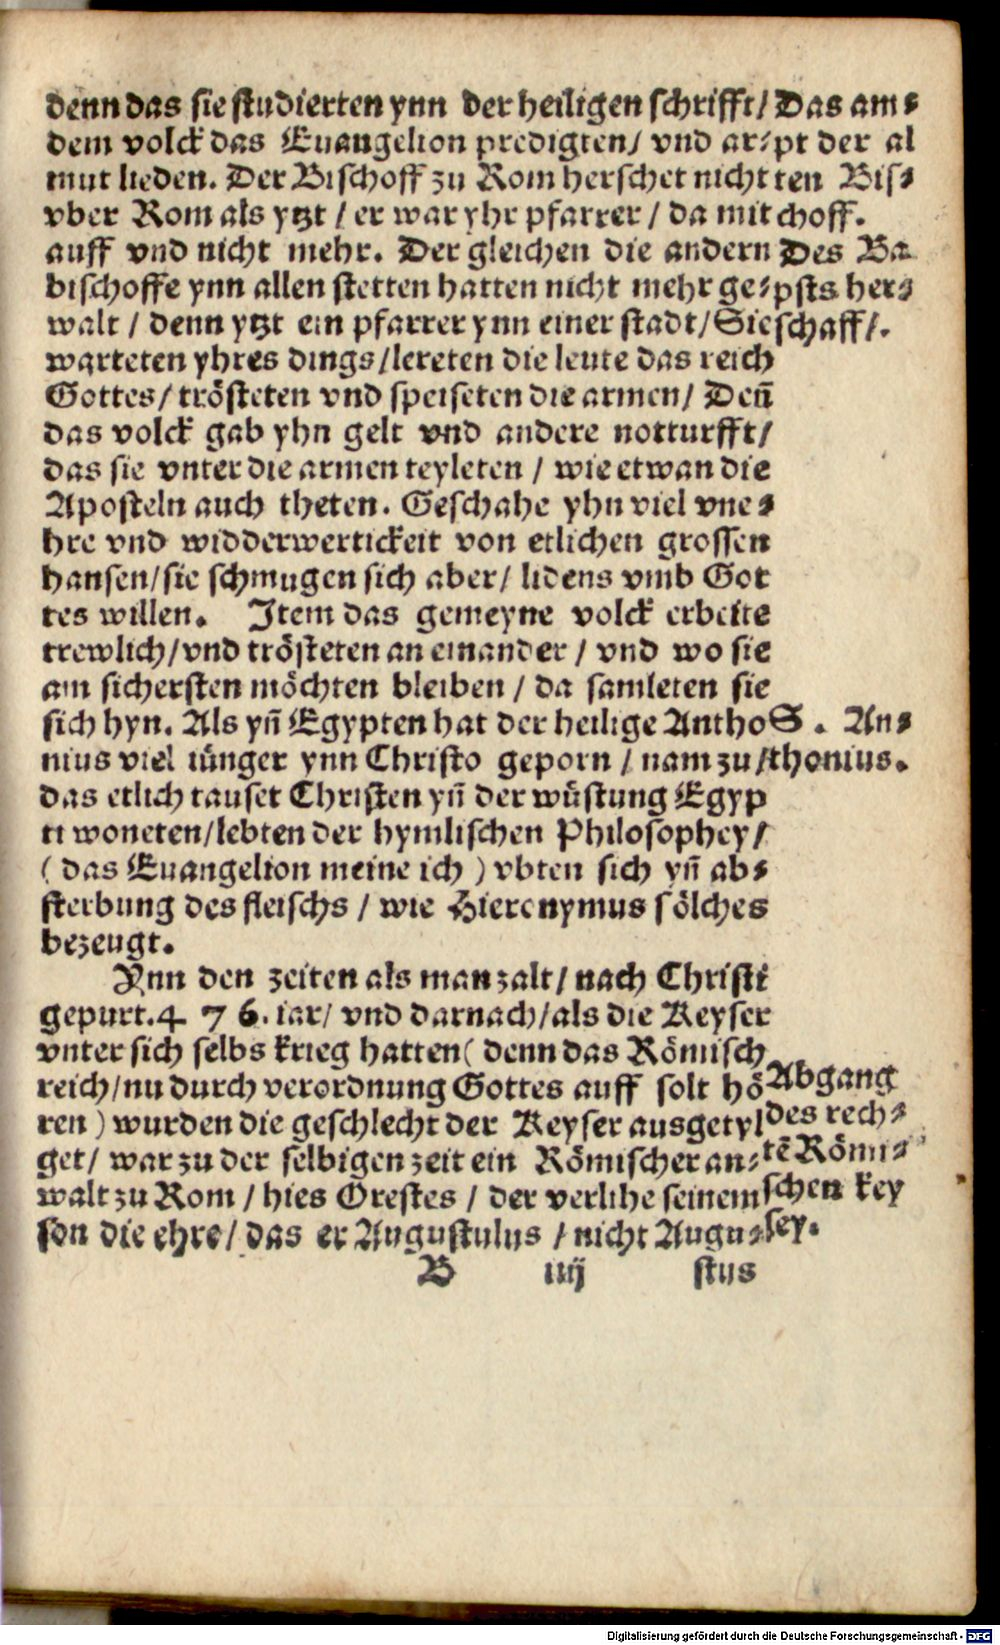 denn das sie studierten ynn der heiligen schrifft/
dem volck das Euangelion predigten/ vnd ar⸗
mut lieden. Der Bischoff zu Rom herschet nicht
vber Rom als ytzt / er war yhr pfarrer / da mit
auff vnd nicht mehr. Der gleichen die andern
bischoffe ynn allen stetten hatten nicht mehr ge⸗
walt / denn ytzt ein pfarrer ynn einer stadt/ Sie
warteten yhres dings/lereten die leute das reich
Gottes/ trösteten vnd speiseten die armen/ Deñ
das volck gab yhn gelt vnd andere notturfft/
das sie vnter die armen teyleten / wie etwan die
Aposteln auch theten. Geschahe yhn viel vne⸗
hre vnd widderwertickeit von etlichen grossen
hansen/sie schmugen sich aber/ lidens vmb Got
tes willen. Item das gemeyne volck erbeite
trewlich/vnd trösteten an einander / vnd wo sie
am sichersten möchten bleiben / da samleten sie
sich hyn. Als yñ Egypten hat der heilige Antho
nius viel iünger ynn Christo geporn / nam zu/
das etlich tauset Christen yñ der wüstung Egyp
ti woneten/lebten der hymlischen Philosophey/
( das Euangelion meine ich ) vbten sich yñ ab⸗
sterbung des fleischs / wie Hieronymus sölches
bezeugt.
Ynn den zeiten als man zalt/ nach Christi
gepurt.4 7 6. iar/ vnd darnach/als die Keyser
vnter sich selbs krieg hatten( denn das Römisch
reich/nu durch verordnung Gottes auff solt hö
ren ) wurden die geschlecht der Keyser ausgetyl
get/ war zu der selbigen zeit ein Römischer an⸗
walt zu Rom / hies Orestes / der verlihe seinem
son die ehre/ das er Augustulus / nicht Augu⸗
B iiij stus
Das am⸗
pt der al
ten Bis⸗
choff.
Des Ba
psts her⸗
schaff/.
S. An⸗
thonius.
Abgang
des rech⸗
tẽ Römi⸗
schen key
sey.
Digitalisierung gefördert durch die Deutsche Forschungsgemeinschaft - DFG